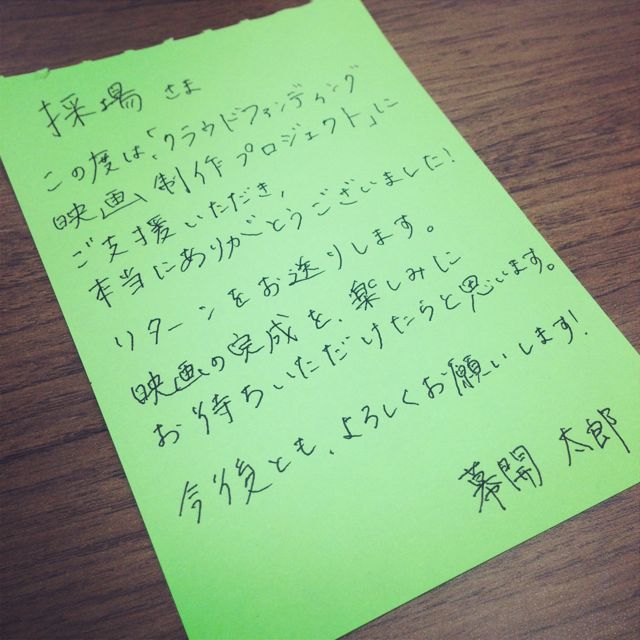 採場さま
この度は「クラウドファンディング
映画制作プロジェクト」に
ご支援いただき、
本当にありがとうございました!
リターンをお送りします。
映画の完成を、楽しみに
お待ちいただけたらと思います。
今後とも、よろしくお願いします!
幕開 太郎